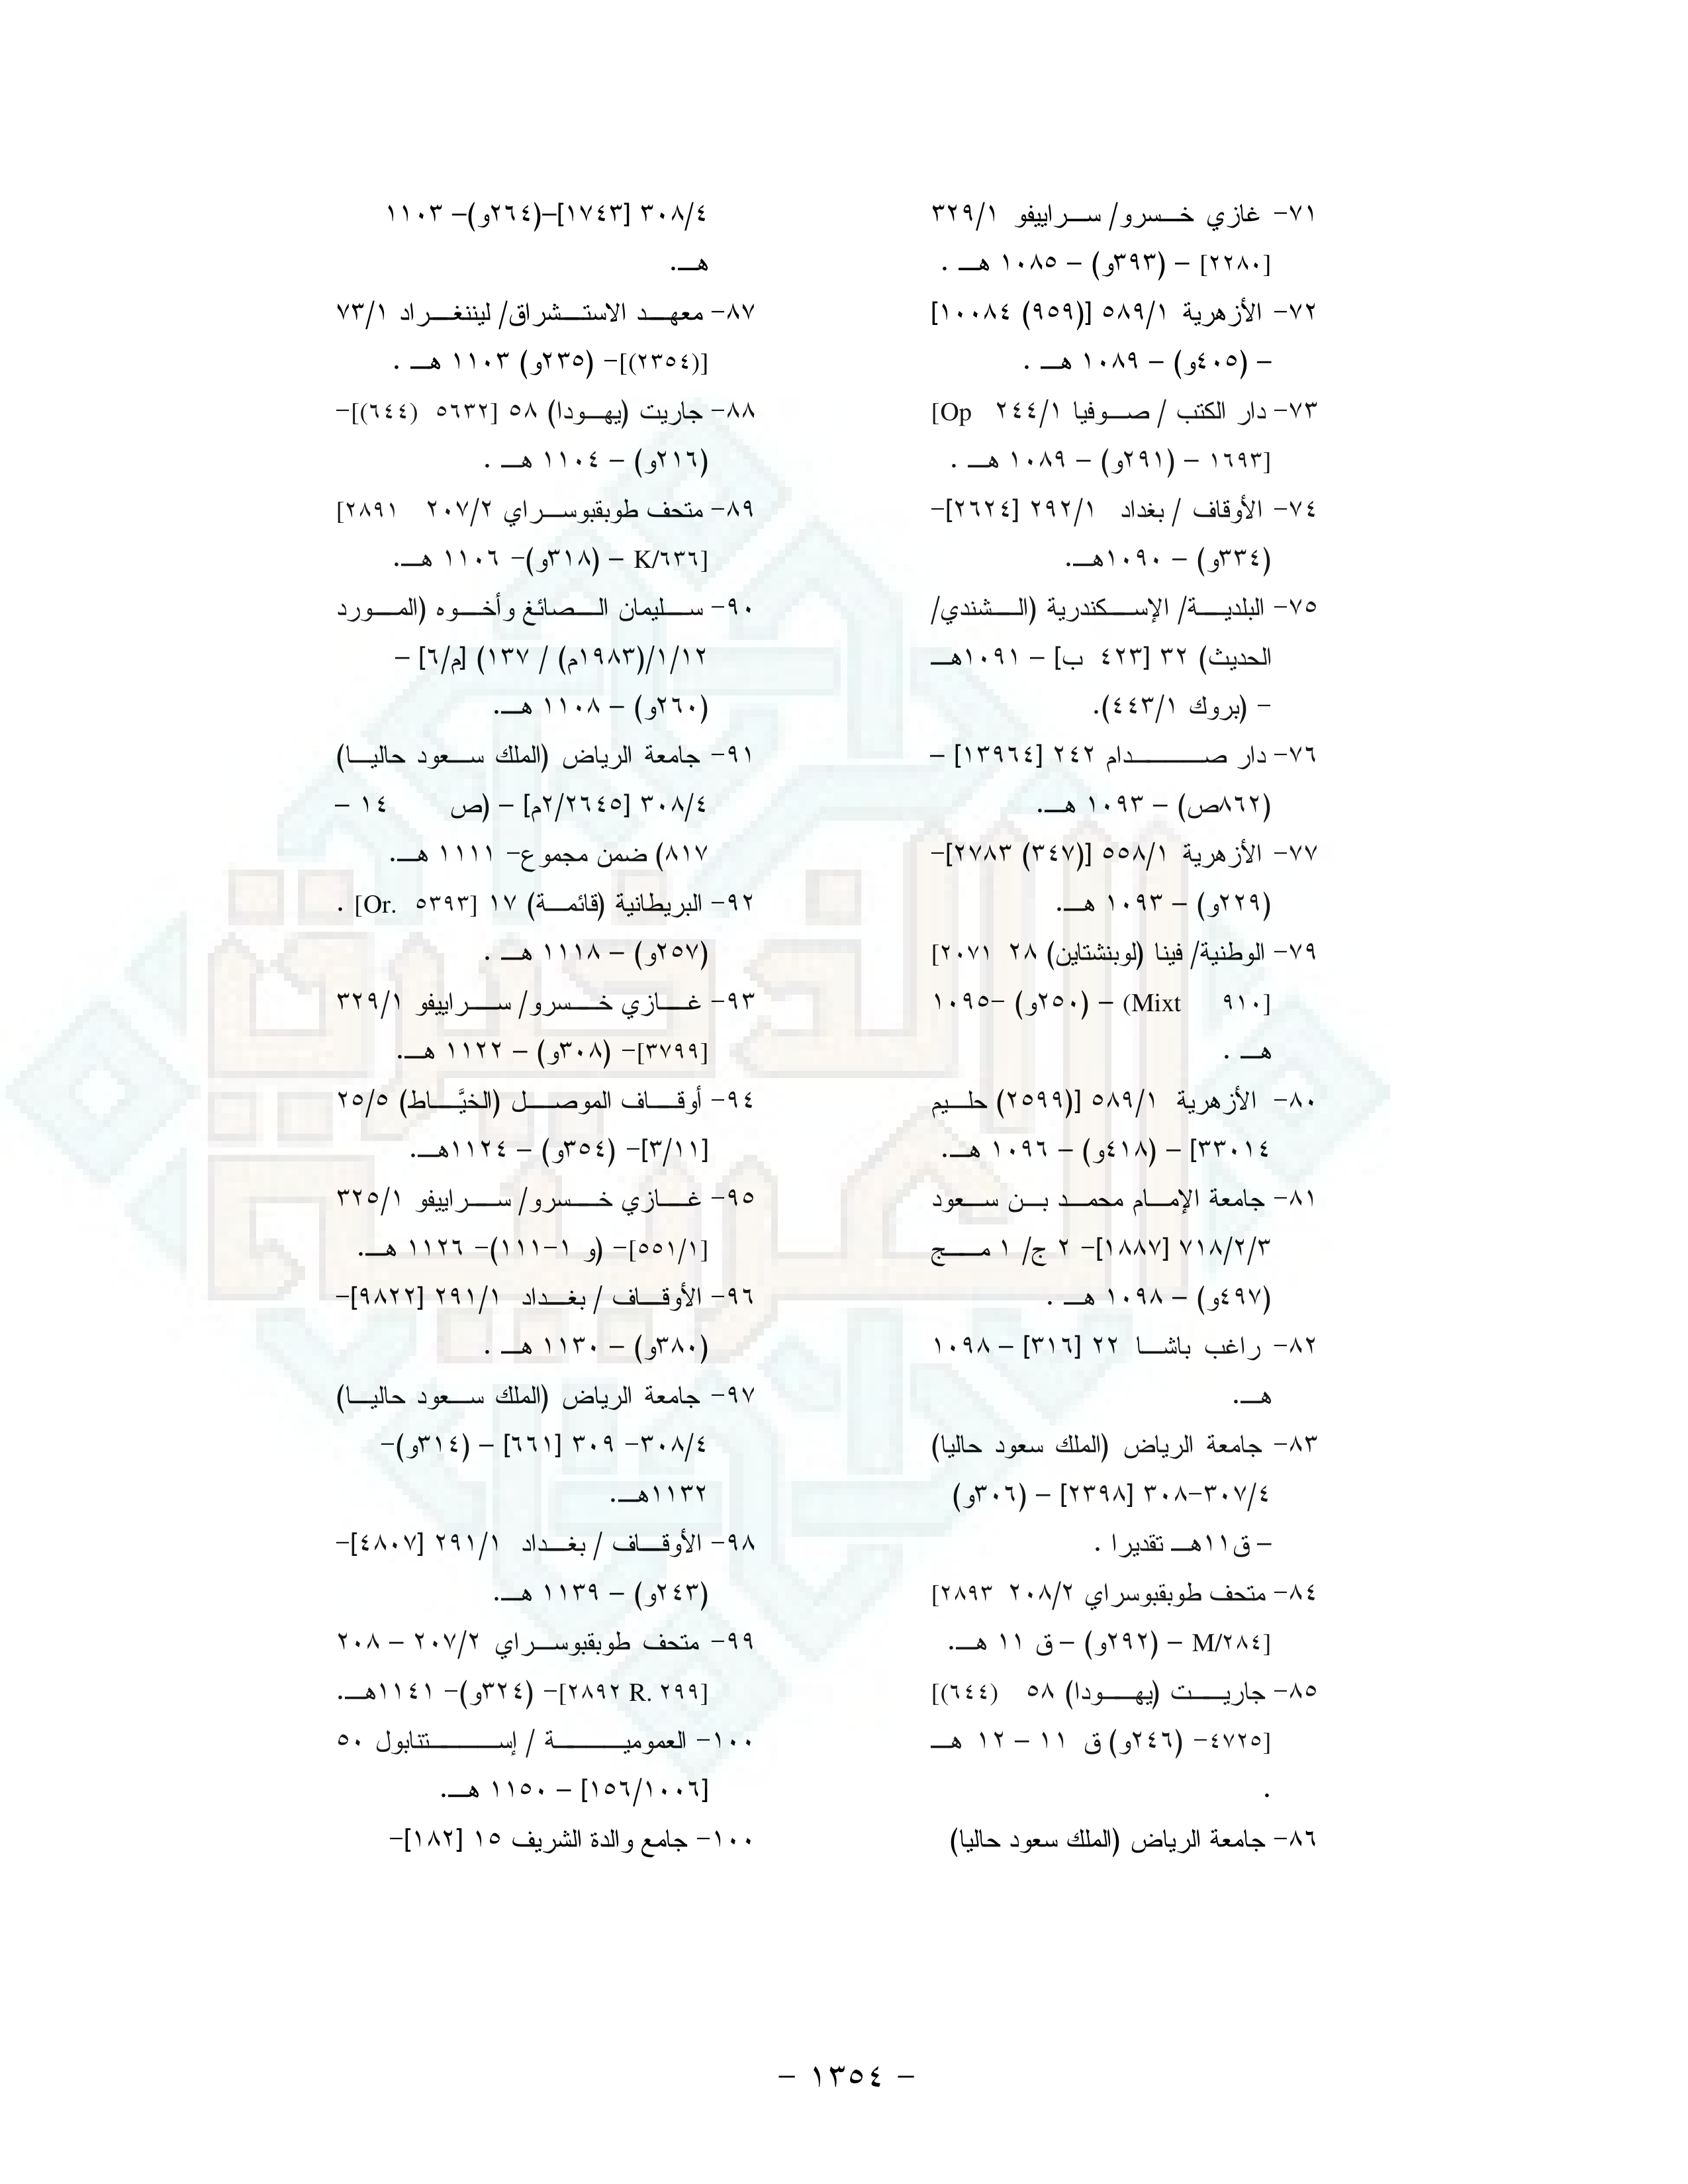 ٧١- غازي خسرو/ سراييفو ٣٢٩/١
[٢٢٨٠] – (٣٩٣و) – ١٠٨٥ هـ .
٧٢- الأزهرية ٥٨٩/١ [(٩٥٩) ١٠٠٨٤]
– (٤٠٥و) – ١٠٨٩ هـ .
٧٣- دار الكتب / صوفيا ٢٤٤/١ [Op
١٦٩٣] – (٢٩١و) – ١٠٨٩ هـ .
٧٤- الأوقاف / بغداد ٢٩٢/١ [٢٦٢٤]-
(٣٣٤و) – ١٠٩٠هـ.
٧٥- البلدية/ الإسكندرية (الشندي/
الحديث) ٣٢ [٤٢٣ ب] – ١٠٩١هـ
- (بروك ٤٤٣/١).
٧٦- دار صدام ٢٤٢ [١٣٩٦٤] –
(٨٦٢ص) – ١٠٩٣ هـ.
٧٧- الأزهرية ٥٥٨/١ [(٣٤٧) ٢٧٨٣]-
(٢٢٩و) – ١٠٩٣ هـ.
٧٩- الوطنية/ فينا (لوبنشتاين) ٢٨ [٢٠٧١
(Mixt ٩١٠] – (٢٥٠و) -١٠٩٥
هـ .
٨٠- الأزهرية ٥٨٩/١ [(٢٥٩٩) حليم
٣٣٠١٤] – (٤١٨و) – ١٠٩٦ هـ.
٨١- جامعة الإمام محمد بن سعود
٧١٨/٢/٣ [١٨٨٧]- ٢ ج/ ١ مج
(٤٩٧و) – ١٠٩٨ هـ .
٨٢- راغب باشا ٢٢ [٣١٦] – ١٠٩٨
هـ.
٨٣- جامعة الرياض (الملك سعود حاليا)
٣٠٧/٤-٣٠٨ [٢٣٩٨] – (٣٠٦و)
– ق١١هـ تقديرا .
٨٤- متحف طوبقبوسراي ٢٠٨/٢ [٢٨٩٣
M/٢٨٤] – (٢٩٢و) – ق ١١ هـ.
٨٥- جاريت (يهودا) ٥٨ [(٦٤٤)
٤٧٢٥]- (٢٤٦و) ق ١١ – ١٢ هـ
.
٨٦- جامعة الرياض (الملك سعود حاليا)
٣٠٨/٤ [١٧٤٣]–(٢٦٤و)– ١١٠٣
هـ.
٨٧- معهد الاستشراق/ ليننغراد ٧٣/١
[(٢٣٥٤)]- (٢٣٥و) ١١٠٣ هـ .
٨٨- جاريت (يهودا) ٥٨ [٥٦٣٢ (٦٤٤)]-
(٢١٦و) – ١١٠٤ هـ .
٨٩- متحف طوبقبوسراي ٢٠٧/٢ [٢٨٩١
K/٦٣٦] – (٣١٨و)- ١١٠٦ هـ.
٩٠- سليمان الصائغ وأخوه (المورد
١/١٢/(١٩٨٣م) / ١٣٧) [م/٦] –
(٢٦٠و) – ١١٠٨ هـ.
٩١- جامعة الرياض (الملك سعود حاليا)
٣٠٨/٤ [٢/٢٦٤٥م] – (ص ١٤ –
٨١٧) ضمن مجموع- ١١١١ هـ.
٩٢- البريطانية (قائمة) ١٧ [Or. ٥٣٩٣] .
(٢٥٧و) – ١١١٨ هـ .
٩٣- غازي خسرو/ سراييفو ٣٢٩/١
[٣٧٩٩]- (٣٠٨و) – ١١٢٢ هـ.
٩٤- أوقاف الموصل (الخيَّاط) ٢٥/٥
[٣/١١]- (٣٥٤و) – ١١٢٤هـ.
٩٥- غازي خسرو/ سراييفو ٣٢٥/١
[٥٥١/١]- (و ١-١١١)- ١١٢٦ هـ.
٩٦- الأوقاف / بغداد ٢٩١/١ [٩٨٢٢]-
(٣٨٠و) – ١١٣٠ هـ .
٩٧- جامعة الرياض (الملك سعود حاليا)
٣٠٨/٤- ٣٠٩ [٦٦١] – (٣١٤و)-
١١٣٢هـ.
٩٨- الأوقاف / بغداد ٢٩١/١ [٤٨٠٧]-
(٢٤٣و) – ١١٣٩ هـ.
٩٩- متحف طوبقبوسراي ٢٠٧/٢ – ٢٠٨
[٢٨٩٢ R. ٢٩٩]- (٣٢٤و)- ١١٤١هـ.
١٠٠- العمومية / إستتنابول ٥٠
[١٥٦/١٠٠٦] – ١١٥٠ هـ.
١٠٠- جامع والدة الشريف ١٥ [١٨٢]-
- ١٣٥٤ -